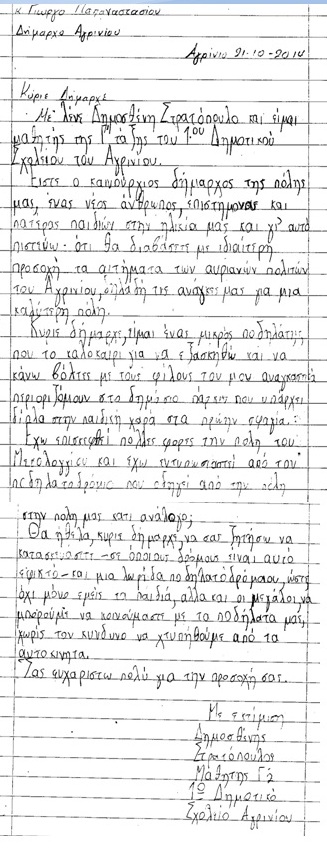 κ Γιώργο Παπαναστασίου
Δήμαρχο Αγρινίου
Αγρίνιο 21-10-2014
Κύριε Δήμαρχε
Με λένε Δημοσθένη Στρατόπουλο και είμαι
μαθητής της Γ΄ τάξης του 1ου Δημοτικού
Σχολείου του Αγρινίου.
Είστε ο καινούργιος δήμαρχος της πόλης
μας, ένας νέος άνθρωπος, επιστήμονας και
πατέρας παιδιών στην ηλικία μας και γι' αυτό
πιστεύω ότι θα διαβάσετε με ιδιαίτερη
προσοχή τα αιτήματα των αυριανών πολιτών
του Αγρινίου, δηλαδή τις ανάγκες μας για μια
καλύτερη πόλη.
Κύριε δήμαρχε, είμαι ένας μικρός ποδηλάτης
που το καλοκαίρι για να εξασκηθώ και να
κάνω βόλτες με τους φίλους του μου αναγκαστικά
περιορίζομουν στο δημόσιο πάρκιν που υπάρχει
δίπλα στην παιδική χαρά στα πρώην σφαγία.
Έχω επισκεφτεί πολλές φορές την πόλη του
Μεσολογγίου και έχω εντυπωσιαστεί από τον
ποδηλατοδρόμιο που οδηγεί από την πόλη
στην πόλη μας κάτι ανάλογο;
Θα ήθελα, κύριε δήμαρχε, να σας ζητήσω να
κατασκευάσετε -σε όποιους δρόμους είναι αυτό
εφικτό- και μια λωρίδα ποδηλατοδρόμου, ώστε
όχι μόνο εμείς τα παιδιά, αλλά και οι μεγάλοι, να
μπορούμε να κινούμαστε με τα ποδήλατα μας,
χωρίς τον κίνδυνο να χτυπηθούμε από τα
αυτοκίνητα.
Σας ευχαριστώ πολύ για την προσοχή σας.
Με εκτίμηση
Δημοσθένης
Στρατόπουλος
Μαθητής Γ2
1ο Δημοτικό
Σχολείο Αγρινίου